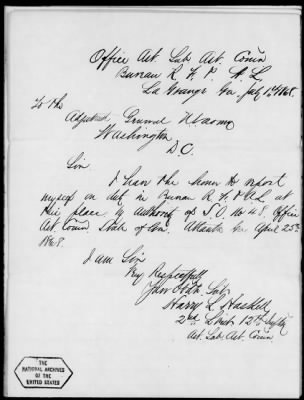 Office Act. Sub Act. Com'r
Bureau R. F. & A. L.
La Grange Ga. July 1st 1868.
To the
Adjutant General U.S. Army
Washington
D.C.
Sir
I have the honor to report
myself on duty in Bureau R. F. & A. L. at
this place by authority of S.O. No 48, Office
Act. Com'd. State of Ga. Atlanta Ga April 25th
1868.
I am Sir
Very Respectfully
Your Obdt. Svt.
Harry L. Haskell
2nd Lieut. 12th Infty
Act. Sub. Act. Com'r
THE
NATIONAL ARCHIVES
OF THE
UNITED STATES